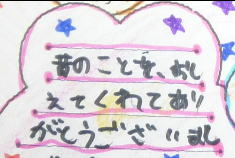 昔のことを、おし
えてくれてあり
がとうございまし